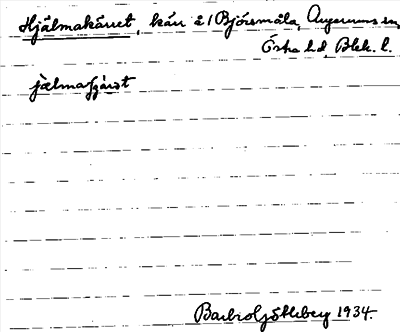 Hjälmakärret, kärr å 1 Björsmåla, Augerums sn,
Östra hd, Blek. l.
jälmaʃʒär̄ət
Barbro Göthberg 1934.